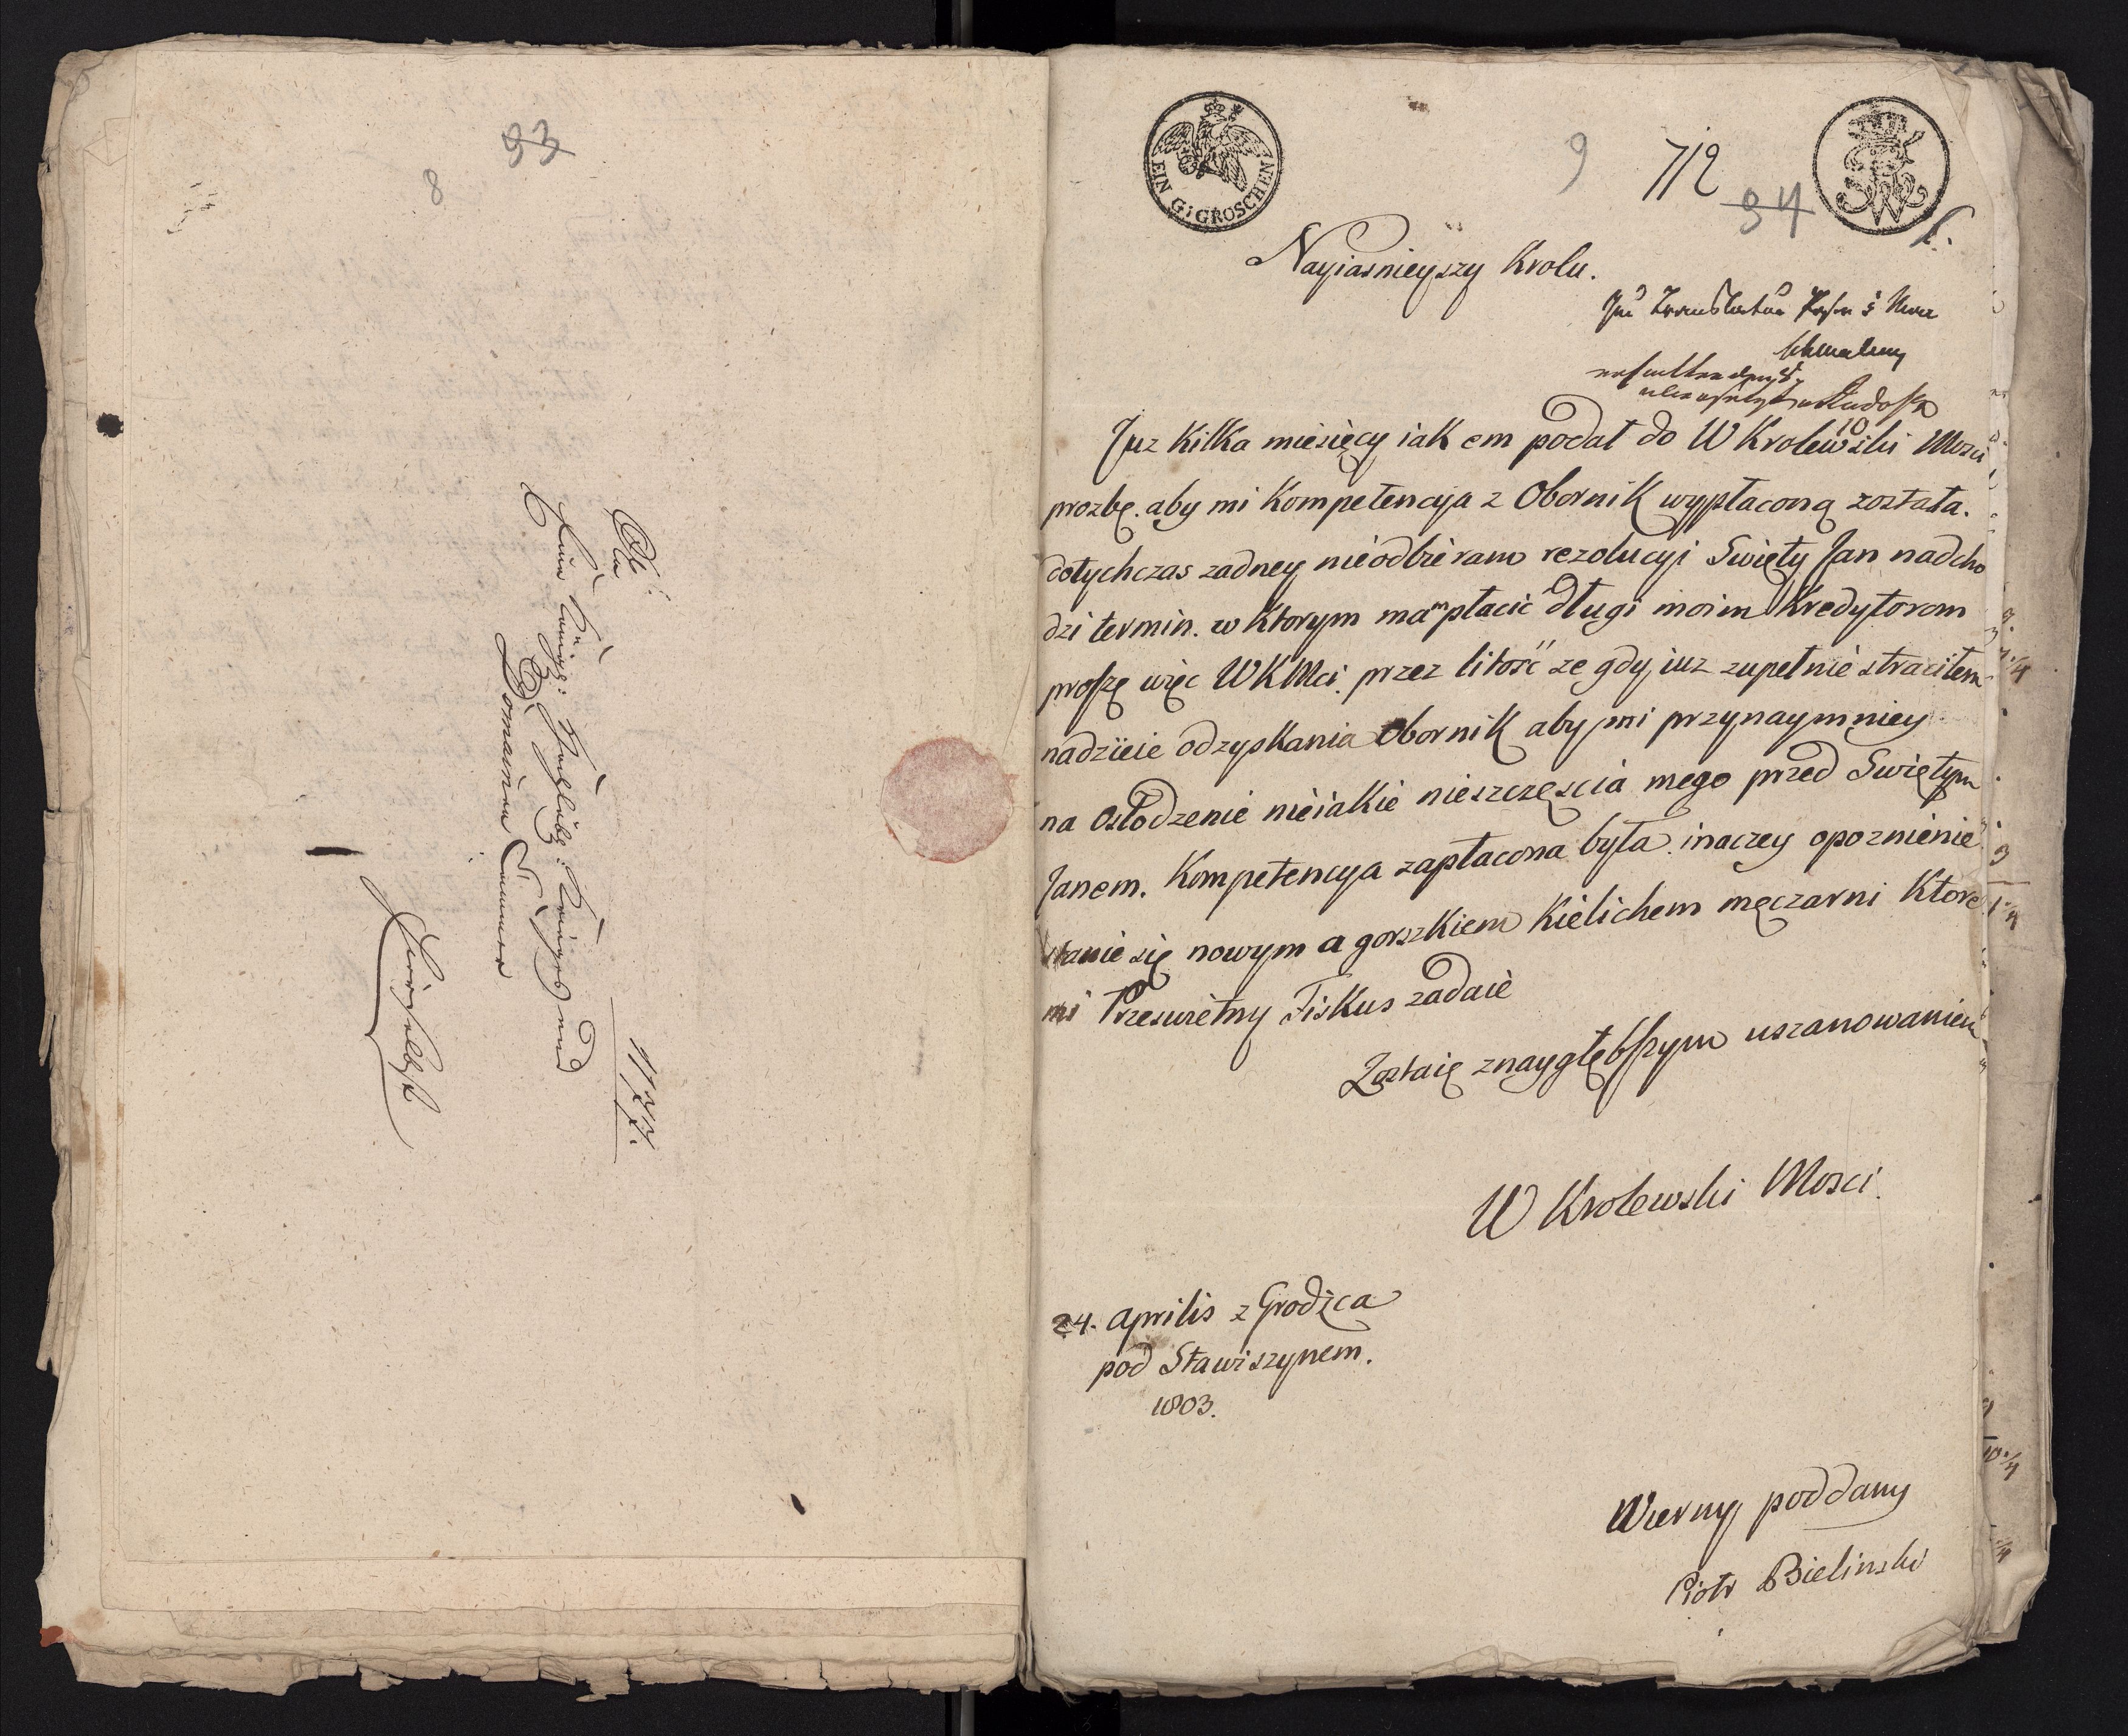 93
8
An
Eine Königl: Hochlöbl: Krieges und
Domainen Cammer
hierselbst
1177.
EIN G: GROSCHEN
9
712
94
Nayiasnieyszy Krolu.
Juz kilka miesięcy iak em podał do W Krolewski Mosci
prozbę. aby mi Kompetencyja z Obornik wypłaconą została.
dotychczas zadney nieodbieram rezolucyi Swięty Jan nadcho
dzi termin. w Ktorym mam płacić długi moim Kredytorom
proszę więc WKMci. przez litość ze gdy iuz zupełnie straciłem
nadzieie odzyskania Obornik aby mi przynaymniey
na osłodzenie nieiakie nieszczęscia mego przed Swiętym
Janem. Kompetencya zapłacona była. inaczey opoznienie
stanie się nowym a gorszkiem Kielichem męczarni Ktore
mi Przeswietny Fiskus zadaie
Zostaię znaygłębszym uszanowaniem
W Krolewski Mosci.
24. Aprilis z Grodzca
pod Stawiszynem.
1803.
Wierny poddany
Piotr Bielinski